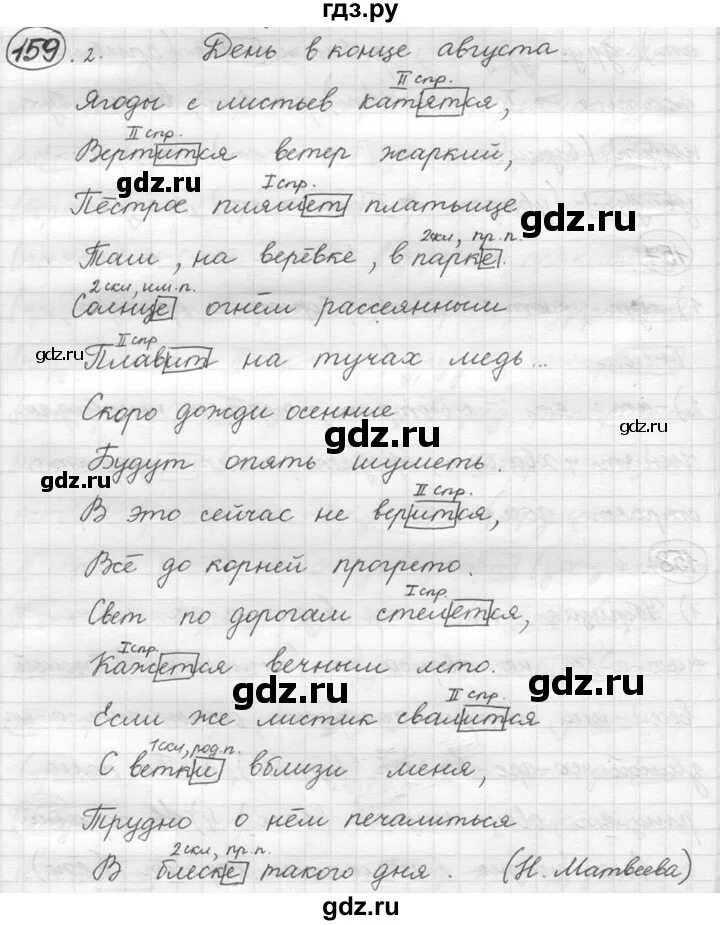 гдз.ру
159. 2. День в конце августа.
II спр.
Ягоды с листьев катятся,
II спр.
Вертится ветер жаркий,
gdz.ru
I спр.
Пёстрое пляшет платьице
gdz.ru
2 скл, пр. п.
Там, на верёвке, в парке.
2 скл, им. п.
Солнце огнём рассеянным
gdz.ru
II спр
Плавит на тучах медь...
gdz.ru
Скоро дожди осенние
gdz.ru
gdz.ru
Будут опять шуметь.
gdz.ru
II спр.
В это сейчас не верится,
Всё до корней прогрето.
I спр.
Свет по дорогам стелется,
I спр.
Кажется вечным лето.
gdz.ru
gdz.ru
II спр.
Если же листик свалится
1 скл, род. п.
С ветки вблизи меня,
Трудно о нём печалиться
2 скл, пр. п.
В блеске такого дня. (Н. Матвеева)
gdz.ru
gdz.ru